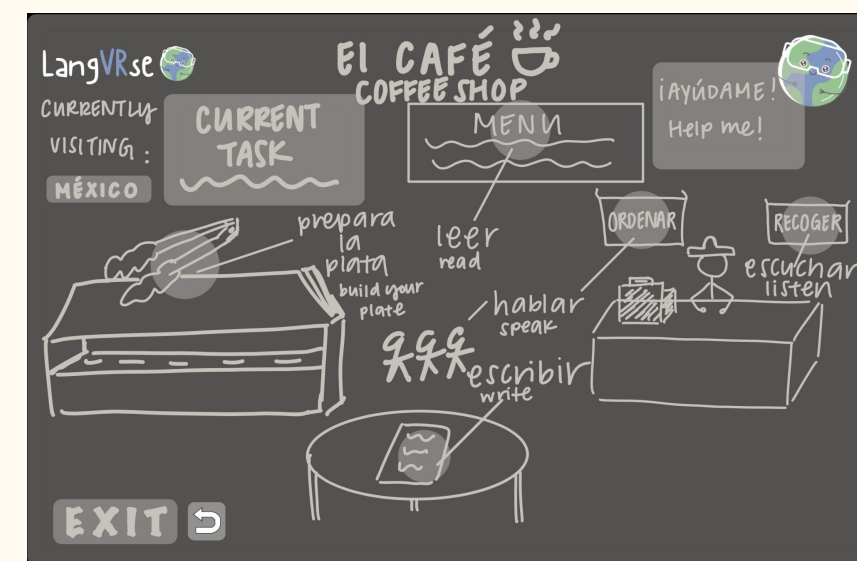 LangVRse
El CAFÉ
COFFEE SHOP
CURRENTLY
VISITING :
MÉXICO
CURRENT
TASK
MENU
¡AYÚDAME!
Help me!
prepara
la
plata
build your
plate
leer
read
ORDENAR
RECOGER
escuchar
listen
hablar
speak
escribir
write
EXIT